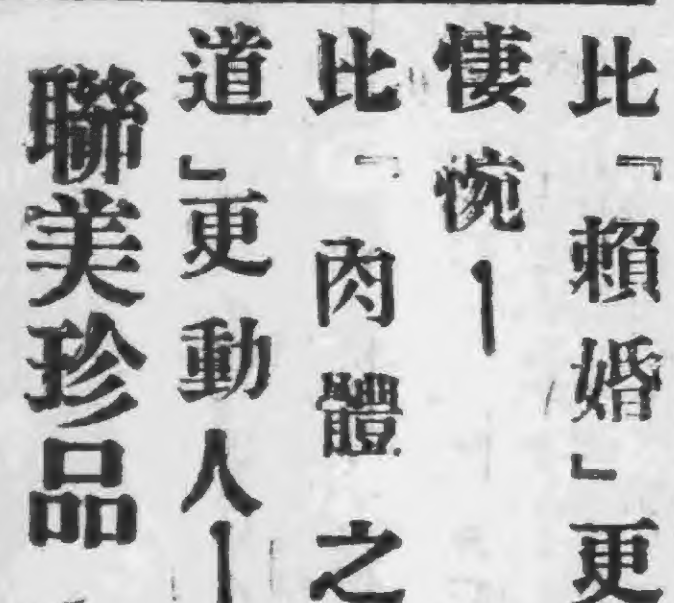 比『賴婚』更
悽惋—
比『肉體之
道』更動人—
聯美珍品